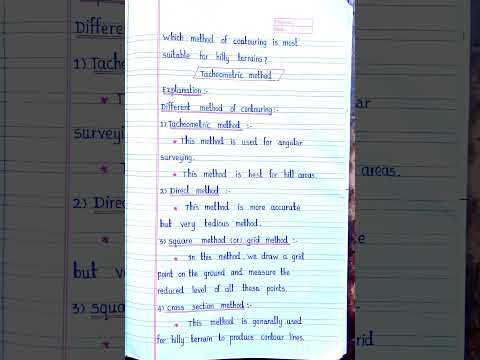 Which method of contouring is most
suitable for hilly terrains?
Tacheometric method
Explanation:-
Different method of contouring:-
1) Tacheometric method :-
* This method is used for angular
surveying.
* This method is best for hill areas.
2) Direct method :-
* This method is more accurate
but very tedious method.
3) square method (or) grid method :-
* In this method, we draw a grid
point on the ground and measure the
reduced level of all these points.
4) cross section method:-
* This method is genarally used
for hilly terrain to produce contour lines.